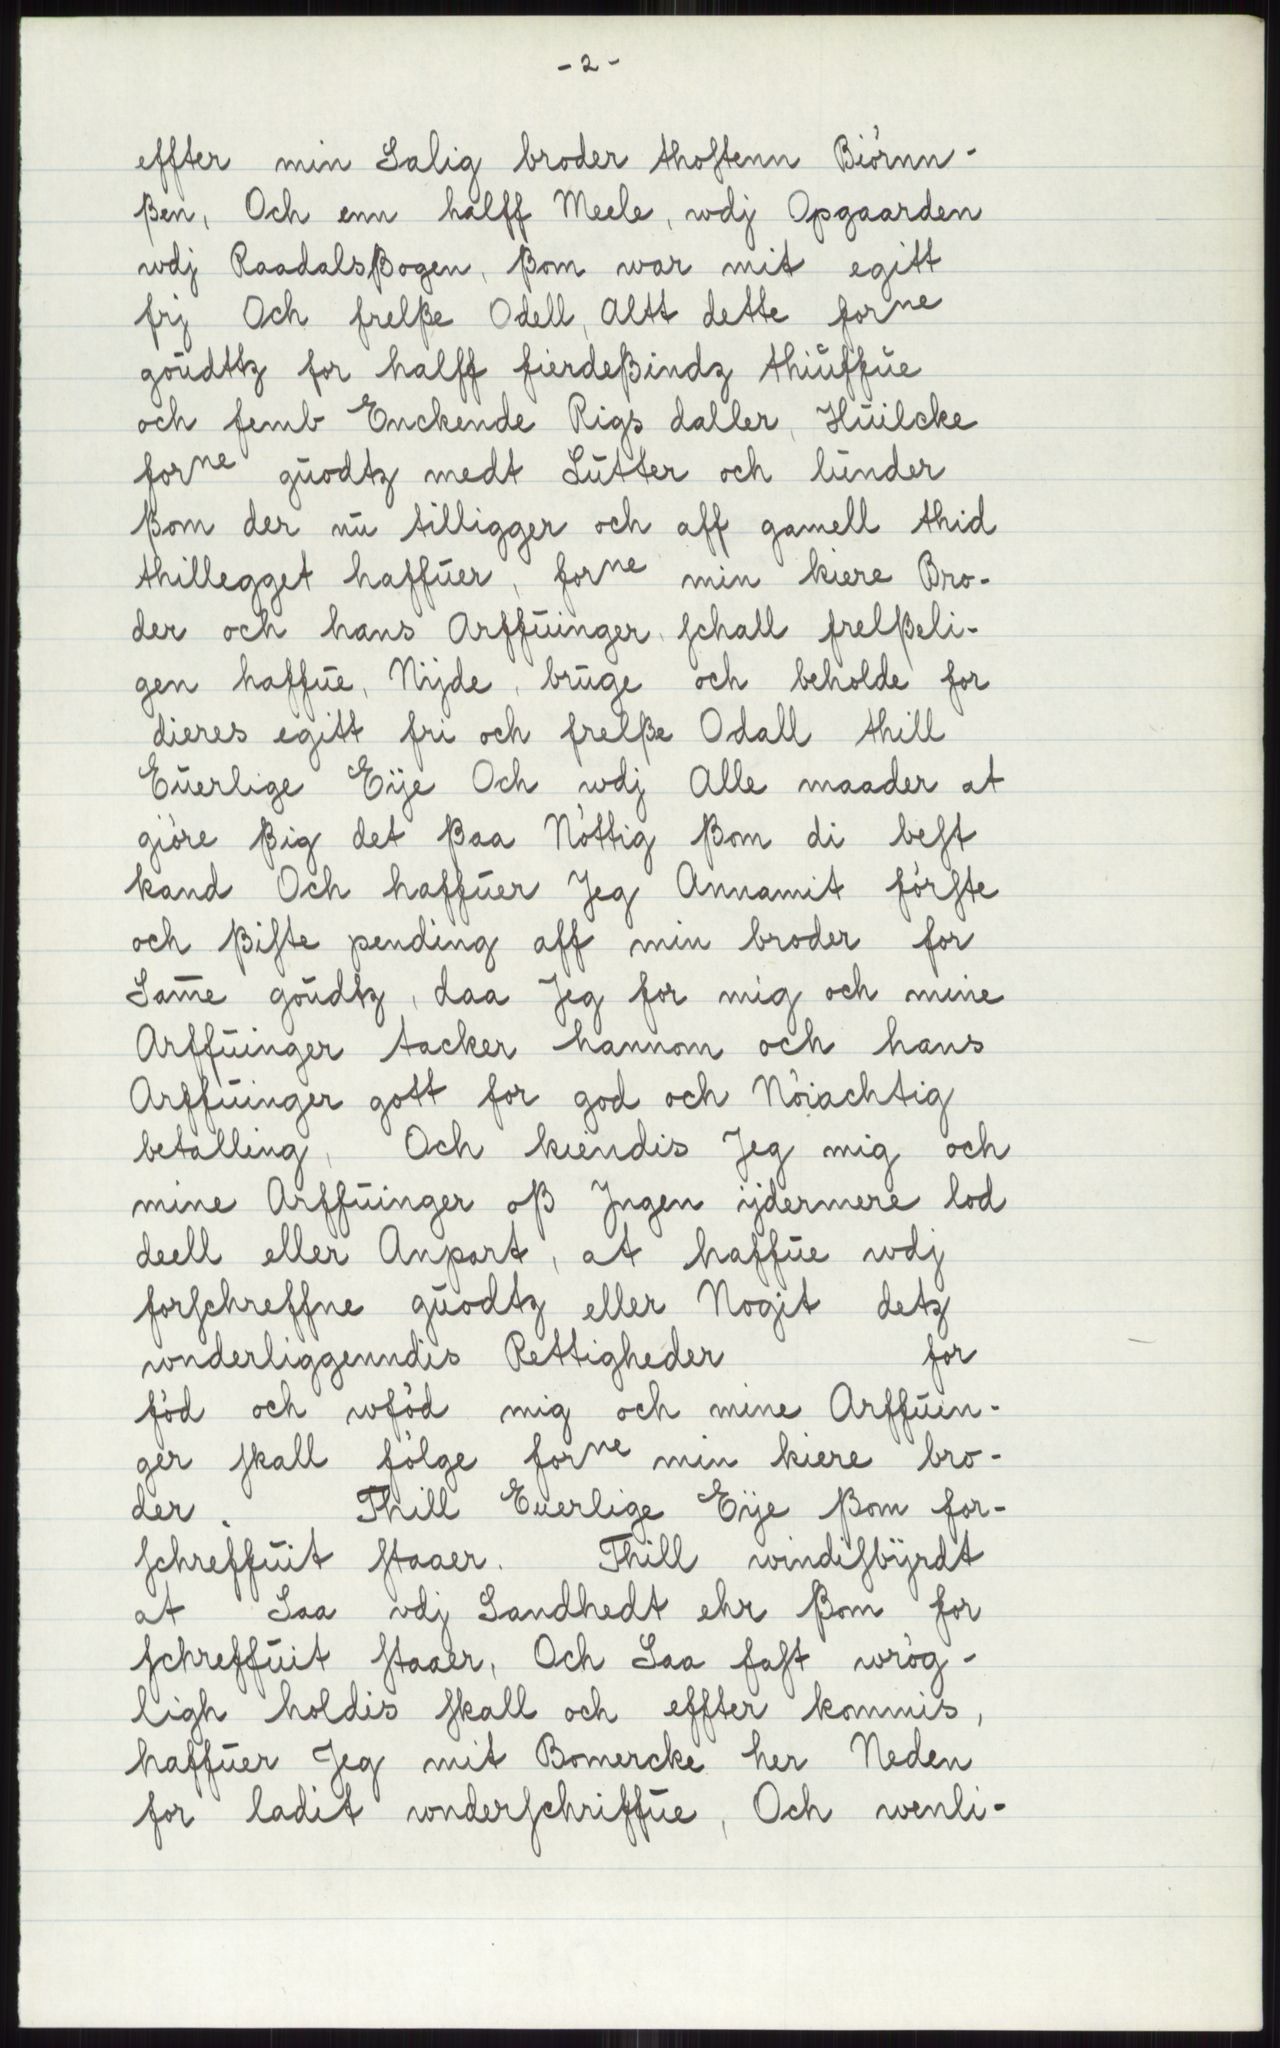 - 2 -
effter min Salig broder thoſtenn Biórnn-
ßen, Och enn halff Meele, wdj Opgaarden
wdj RaadalsBogen, ßom war mit egitt
frj Och frelße Odell, Altt dette forne
goūdttz for halff fierdeßindz thiūffūe
och femb Enckende Rigs daller, Hūilcke
forne gūodtz medt Lūtter och lūnder
ßom der nū tilligger och aff gamell thid
thillegget haffūer, forne min kiere Bro-
der och hans Arffūinger ſchall frelßeli-
gen haffūe, Nÿde, brūge och beholde for
dieres egitt fri och frelße Odall thill
Eūerlige Eÿe Och wdj Alle maader at
gióre ßig det ßaa Nóttig ßom di beſt
kand Och haffūer Jeg Annamit fórſte
och ßiſte pending aff min broder for
Sam̄e goūdtz, daa Jeg for mig och mine
Arffūinger tacker hannom och hans
Arffūinger gott for god och Nóiachtig
betalling, Och kiendis Jeg mig och
mine Arffūinger oß Jngen ÿdermere lod
deell eller Anpart, at haffūe wdj
forſchreffne gūodtz eller Nogit detz
wnderliggenndis Rettigheder for
fód och wfód mig och mine Arffūin-
ger ſkall fólge forne min kiere bro-
der. Thill Euerlige Eÿe ßom for-
ſchreffūit ſtaaer. Thill windiſbÿrdt
at Saa vdj Sandhedt ehr ßom for
ſchreffūit ſtaaer, Och Saa faſt wróg-
ligh holdis ſkall och effter kommis,
haffūer Jeg mit Bomercke her Neden
for ladit wnderſchriffūe, Och wenli-